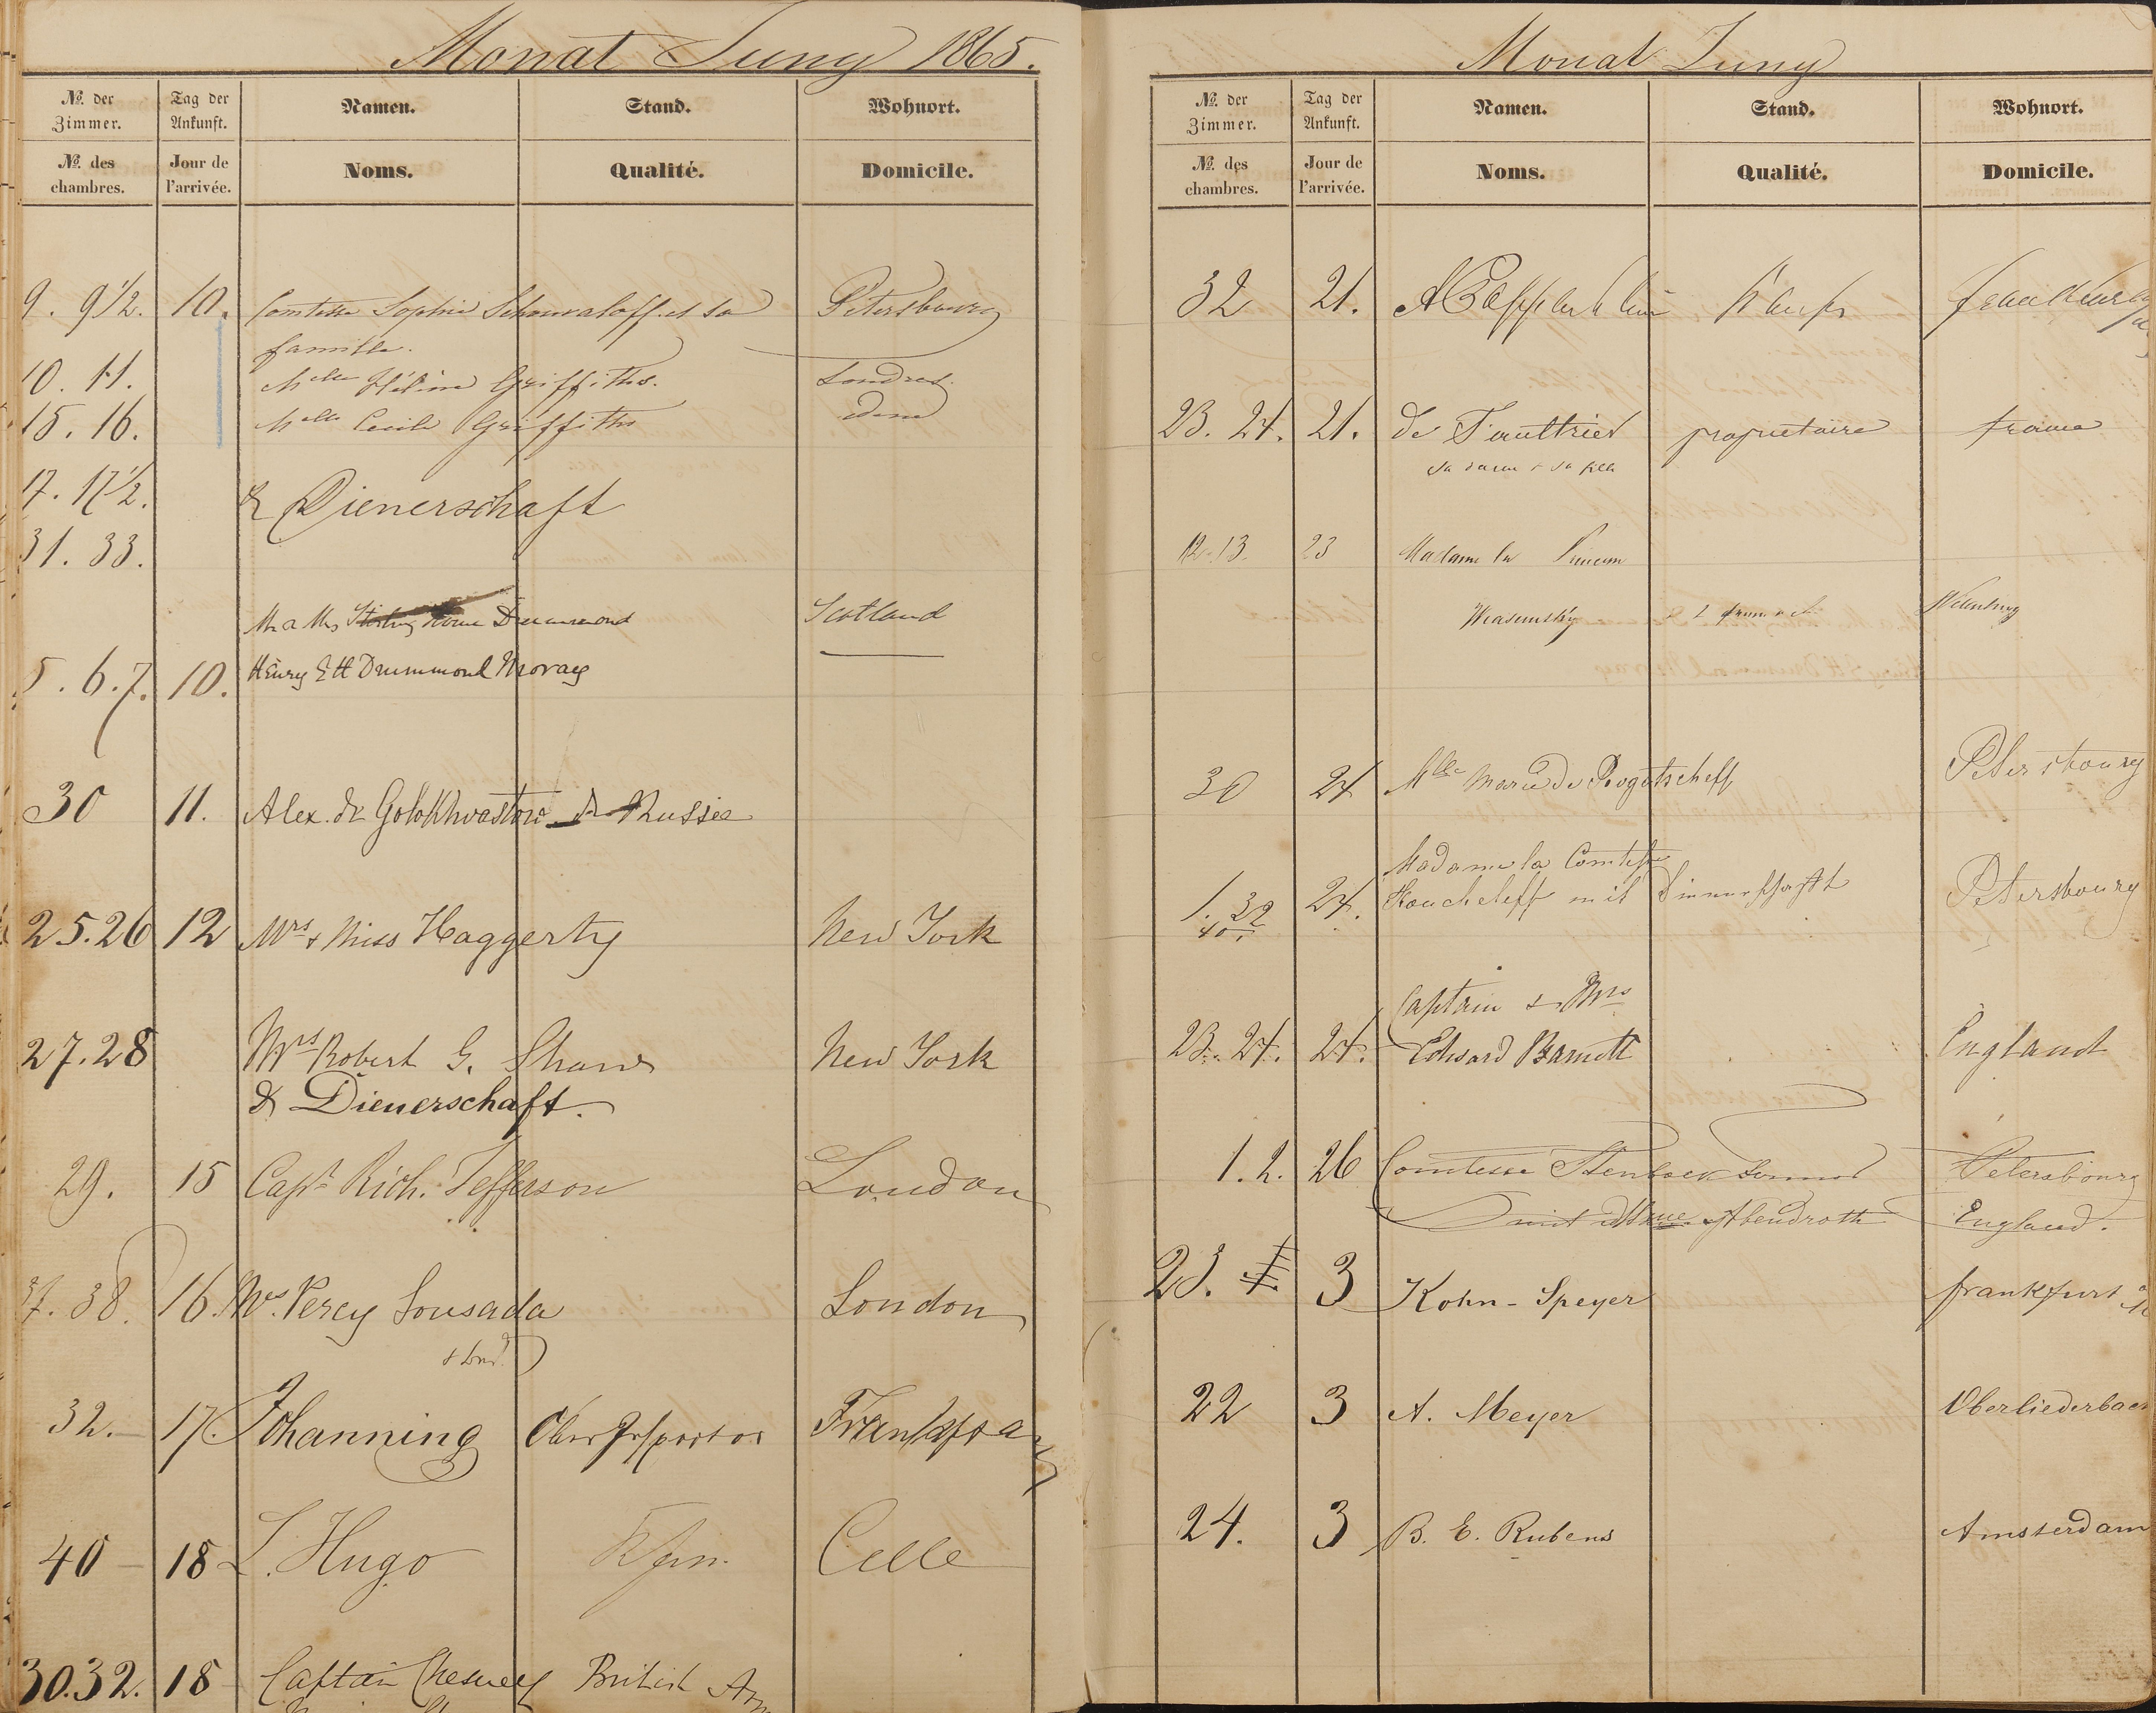 Monat Juny 1865.
No. der Zimmer. Tag der Ankunft. Namen. Stand. Wohnort.
No. des chambres. Jour de l'arrivée. Noms. Qualité. Domicile.
9. 9½. 10. Comtesse Sophie Schouvaloff et sa Petersbourg
famille.
10. 11. Melle Hélène Griffiths. Londres.
15. 16. Melle Cecile Griffiths
17. 17½. & Dienerschaft
31. 33.
Mr & Mrs Stirling Home Drummond Scotland
5. 6. 7. 10. Henry E H Drummond Moray
30 11. Alex. de Golokhvastow de Russie
25.26 12 Mrs & Miss Haggerty New York
27.28 Mrs Robert G. Shaw New York
& Dienerschaft.
29. 15 Capt Rich. Jefferson London
37. 38. 16. Mrs. Percy Lousada London
32. 17. Johanning Ober Inspector
40 18 L. Hugo Kfm. Celle
30.32. 18 Captain Chesney British
Monat Juny
No. der Zimmer. Tag der Ankunft. Namen. Stand. Wohnort.
No. des chambres. Jour de l'arrivée. Noms. Qualité. Domicile.
32 21.
23. 24. 21. de propriétaire france
12. 13. 23 Madame la
30 24 Mlle Marie de Petersbourg
Madame la Comtesse
1. 39 24. mit Dienerschaft Petersbourg
40.
Captain & Mrs
23. 24. 24. Edward Barnett England
1. 2. 26 Comtesse Stenbock Fermor Petersbourg
mit Miss Abendroth England.
23. 3 Kohn-Speyer frankfurt
22 3 A. Meyer Oberliederbach
24. 3 B. E. Rubens Amsterdam